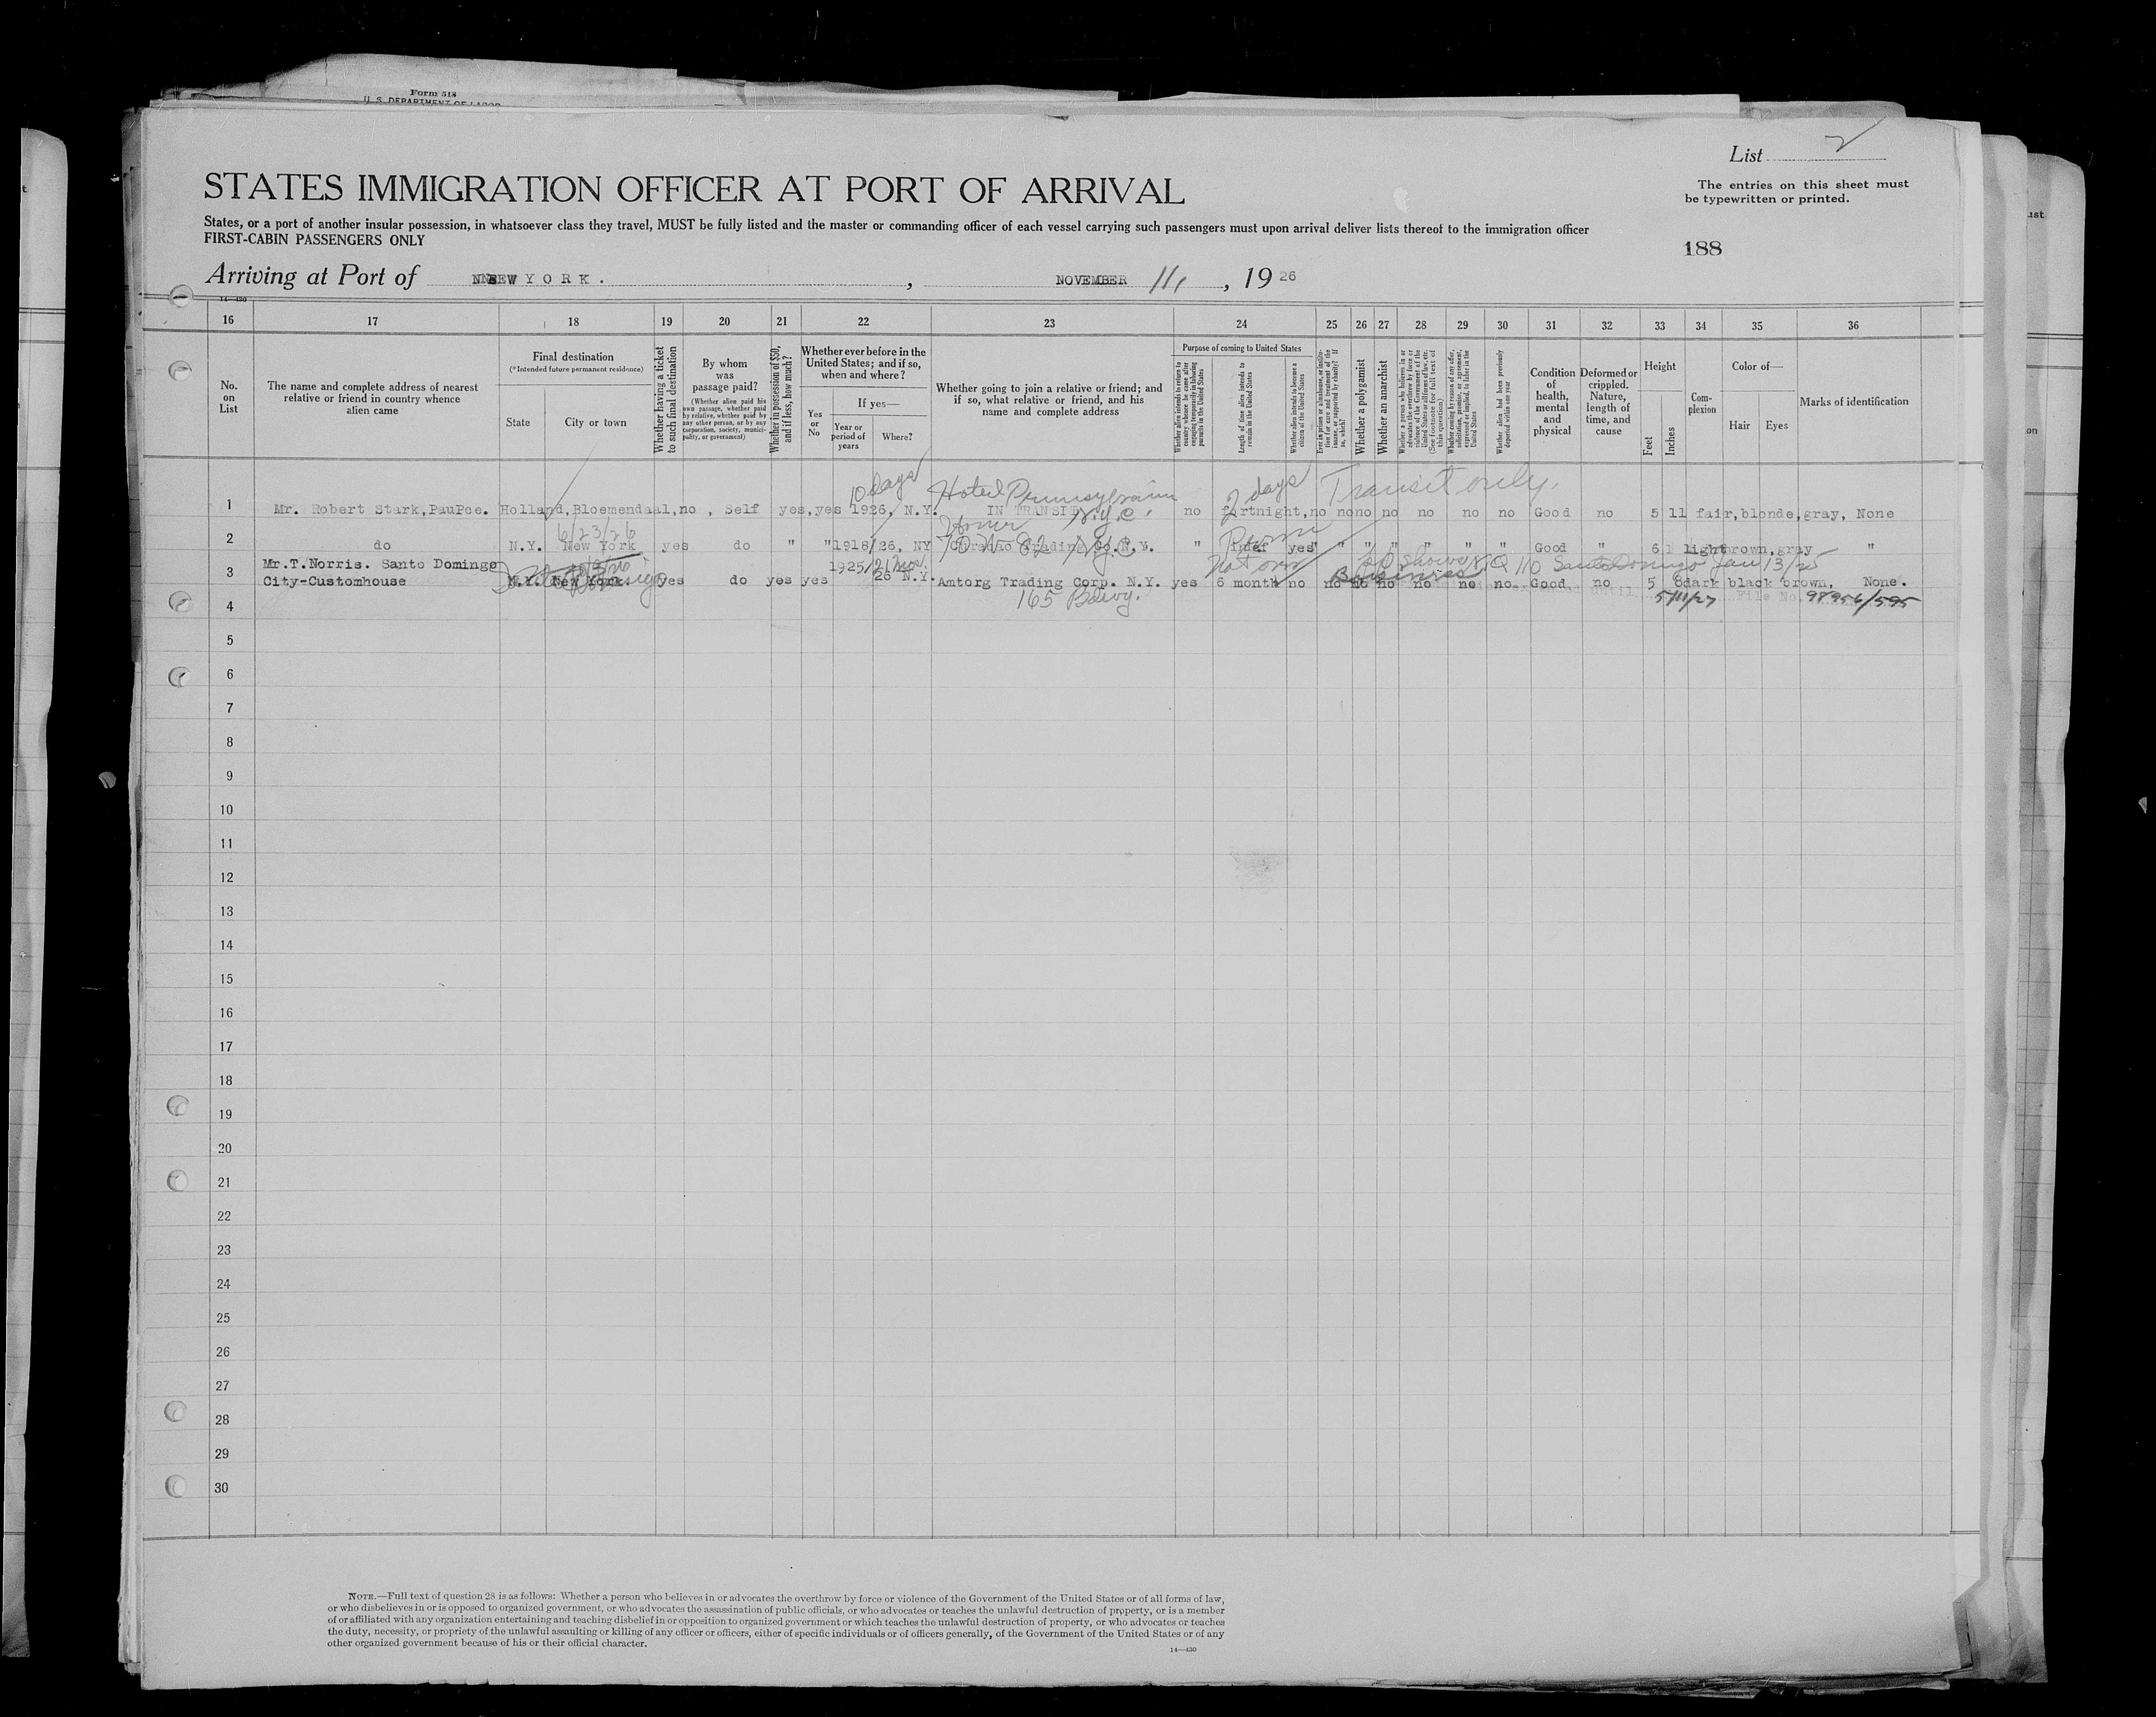 Form 518
U. S. DEPARTMENT OF LABOR
List 2
STATES IMMIGRATION OFFICER AT PORT OF ARRIVAL
The entries on this sheet must
be typewritten or printed.
States, or a port of another insular possession, in whatsoever class they travel, MUST be fully listed and the master or commanding officer of each vessel carrying such passengers must upon arrival deliver lists thereof to the immigration officer
FIRST-CABIN PASSENGERS ONLY
188
Arriving at Port of NEW YORK. , NOVEMBER 11, , 19 26
14—430
16 17 18 19 20 21 22 23 24 25 26 27 28 29 30 31 32 33 34 35 36
No.
on
List
The name and complete address of nearest
relative or friend in country whence
alien came
Final destination
(*Intended future permanent residence)
State
City or town
Whether having a ticket
to such final destination
By whom
was
passage paid?
(Whether alien paid his
own passage, whether paid
by relative, whether paid by
any other person, or by any
corporation, society, munici-
pality, or government)
Whether in possession of $50,
and if less, how much?
Whether ever before in the
United States; and if so,
when and where?
Yes
or
No
If yes—
Year or
period of
years
Where?
Whether going to join a relative or friend; and
if so, what relative or friend, and his
name and complete address
Purpose of coming to United States
Whether alien intends to return to
country whence he came after
engaging temporarily in laboring
pursuits in the United States
Length of time alien intends to
remain in the United States
Whether alien intends to become a
citizen of the United States
Ever in prison or almshouse, or institu-
tion for care and treatment of the
insane, or supported by charity? If
so, which?
Whether a polygamist
Whether an anarchist
Whether a person who believes in or
advocates the overthrow by force or
violence of the Government of the
United States or all forms of law, etc.
(See footnote for full text of
this question)
Whether coming by reason of any offer,
solicitation, promise, or agreement,
expressed or implied, to labor in the
United States
Whether alien had been previously
deported within one year
Condition
of
health,
mental
and
physical
Deformed or
crippled.
Nature,
length of
time, and
cause
Height
Feet
Inches
Com-
plexion
Color of—
Hair
Eyes
Marks of identification
10 days Hotel Pennsylvania 2 days Transit only.
1 Mr. Robert Stark,PauPce. Holland,Bloemendaal,no , Self yes,yes 1926, N.Y. IN TRANSIT N.Y.C. no fortnight,no no no no no no no Good no 5 11 fair,blonde,gray, None
6/23/26 Home
2 do N.Y. New York yes do " " 1918/26, NY Trading Co.N.Y. " yes " " " " " " " Good " 6 1 light brown,gray "
Mr.T.Norris. Santo Domingo 1925/ Santo Domingo Jan 13/25
3 City-Customhouse N.Y. New York. yes do yes yes 26 N.Y. Amtorg Trading Corp. N.Y. yes 6 month no no no no no no no Good no 5 8 dark black brown, None.
165 Bdwy. Business 5/11/27 File No. 98956/595
4
5
6
7
8
9
10
11
12
13
14
15
16
17
18
19
20
21
22
23
24
25
26
27
28
29
30
NOTE.—Full text of question 28 is as follows: Whether a person who believes in or advocates the overthrow by force or violence of the Government of the United States or of all forms of law,
or who disbelieves in or is opposed to organized government, or who advocates the assassination of public officials, or who advocates or teaches the unlawful destruction of property, or is a member
of or affiliated with any organization entertaining and teaching disbelief in or opposition to organized government or which teaches the unlawful destruction of property, or who advocates or teaches
the duty, necessity, or propriety of the unlawful assaulting or killing of any officer or officers, either of specific individuals or of officers generally, of the Government of the United States or of any
other organized government because of his or their official character.
14—430